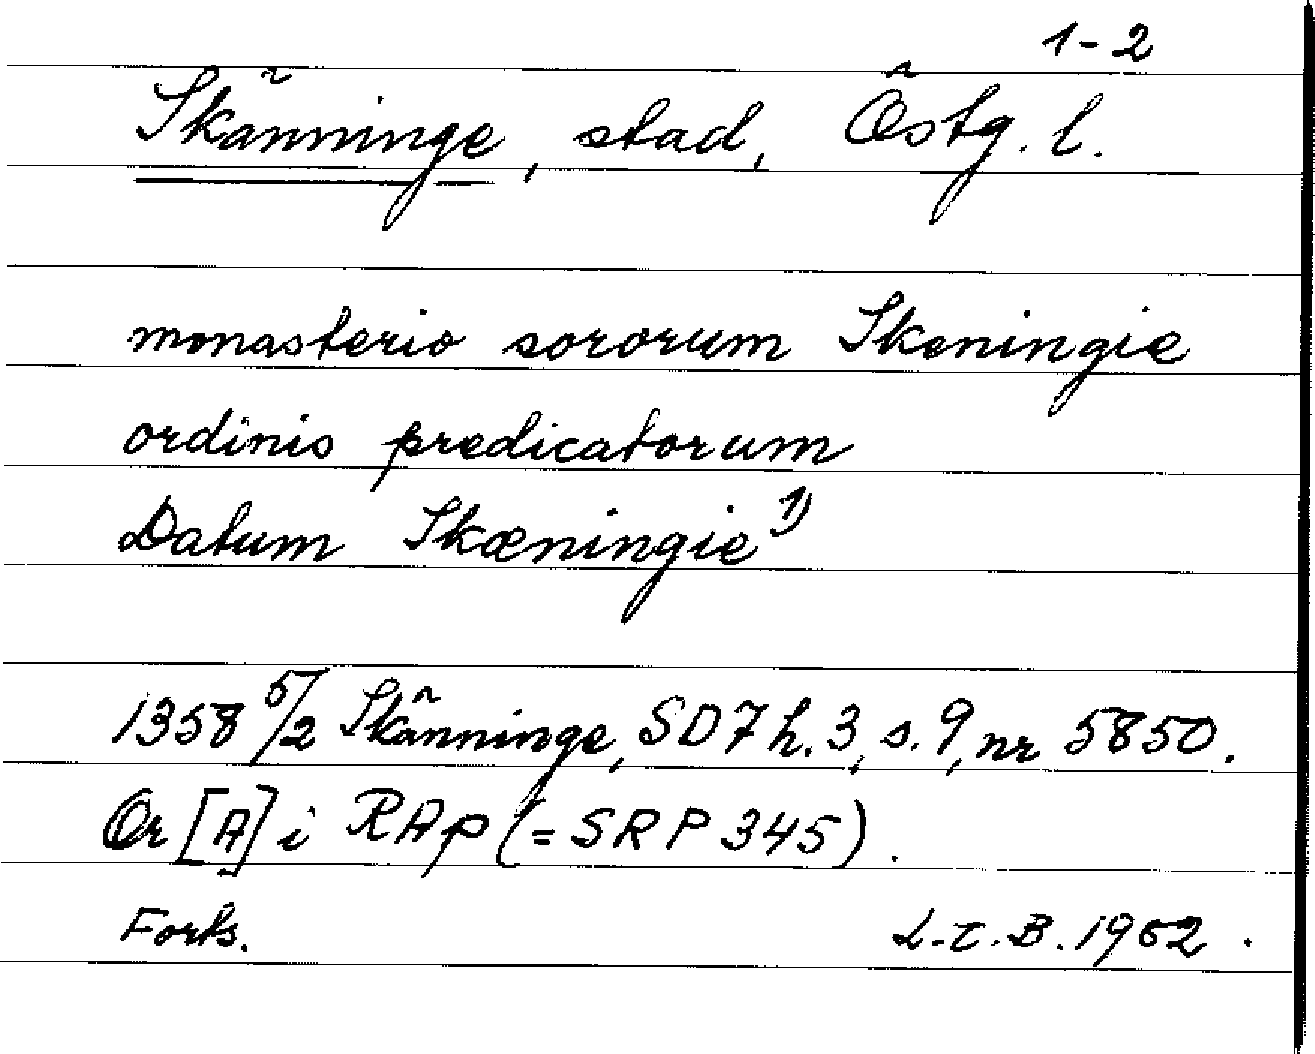 1-2
Skänninge, stad, Östg. l.
monasterio sororum Skeningie
ordinis predicatorum
Datum Skæningie 1)
1358 5/2 Skänninge, SD 7 h. 3, s. 9, nr 5850.
Or [A] i RAp (= SRP 345).
Forts.
L-t. B. 1962.